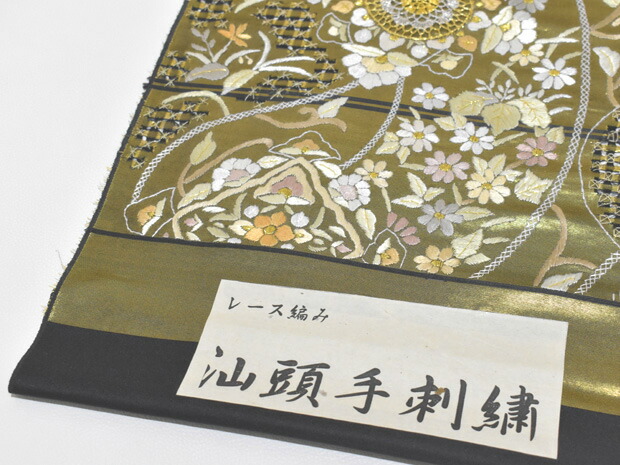 レース編み
汕頭手刺繍